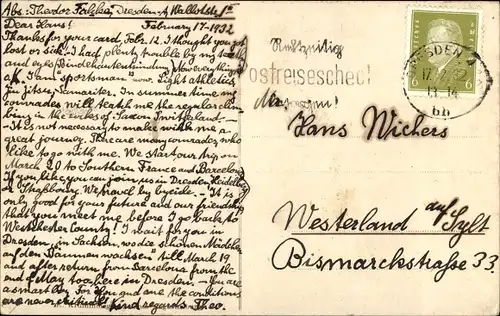 Abs: Theodor Dresden-A Wallotstr.
Dear Hans! February 17-1932
Thanks for your card, Febr. 12. I thought you got
lost or sick. I had plenty trouble by my teeth
and eyes/Bindehautentzündung. Now everything
o.k. I am "sportsman" now. Light athletics,
Jiu Jitsu, Samariter. In summer time me
comrades will teach me the regular climb-
ing in the rules of Saxon Switzerland. —
— It is not necessary to make with me a
great journey. There are many comrades, who
like to go with me. We start our trip on
March 20 to Southern France and Barcelona.
If you like, you can join us in Dresden, Heidelberg
or Straßbourg. We travel by bycicle. — It is
only good for your future and our friendship
that you meet me before I go back to
Westchester County! I wait for you in
Dresden, in Sachsen, wo die schönen Mädchen
auf den Bäumen wachsen" till March 19
and after return from Barcelona from the
out of May too here in Dresden — You are
a smart boy. For you and me the conditions
are never critical! Kind regards Theo.
Rechtzeitig
ostreisescheck!
DRESDEN A
17.2.32
13-14
bb
6 6
Hans Wichers
Westerland auf Sylt
Bismarckstraße 33.